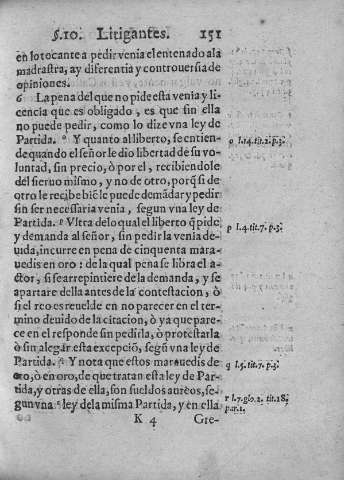 §.10. Litigantes. 151
en lo tocante a pedir venia el entenado a la
madrastra, ay diferentia y controuersia de
opiniones.
6 La pena del que no pide esta venia y li-
cencia que es obligado, es que sin ella
no puede pedir, como lo dize vna ley de
Partida. º Y quanto al liberto, se entien-
de quando el señor le dio libertad de su vo-
luntad, sin precio, ò por el, recibiendole
del sieruo mismo, y no de otro, porq̃ si de
otro le recibe biẽ le puede demãdar y pedir
sin ser necessaria venia, segun vna ley de
Partida. P Vltra delo qual el liberto q̃ pide
y demanda al señor, sin pedir la venia de-
uida, incurre en pena de cinquenta mara-
uedis en oro: de la qual pena se libra el a-
ctor, si se arrepintiere de la demanda, y se
apartare della antes de la contestacion, ò
si el reo es reuelde en no parecer en el ter-
mino deuido de la citacion, ò ya que pare-
ce en el responde sin pedirla, ò protestarla
ò sin alegar esta excepciõ, segũ vna ley de
Partida. q Y nota que estos marauedis de
oro, ò en oro, de que tratan esta ley de Par-
tida, y otras de ella, son sueldos aureos, se-
gun vna r ley de la misma Partida, y en ella
K 4 Gre-
o l.14.tit.2.p.3.
p l.4.tit.7.p.3.
q l.5.tit.7.p.3.
r l.7.glo.2. tit.18.
par.1.